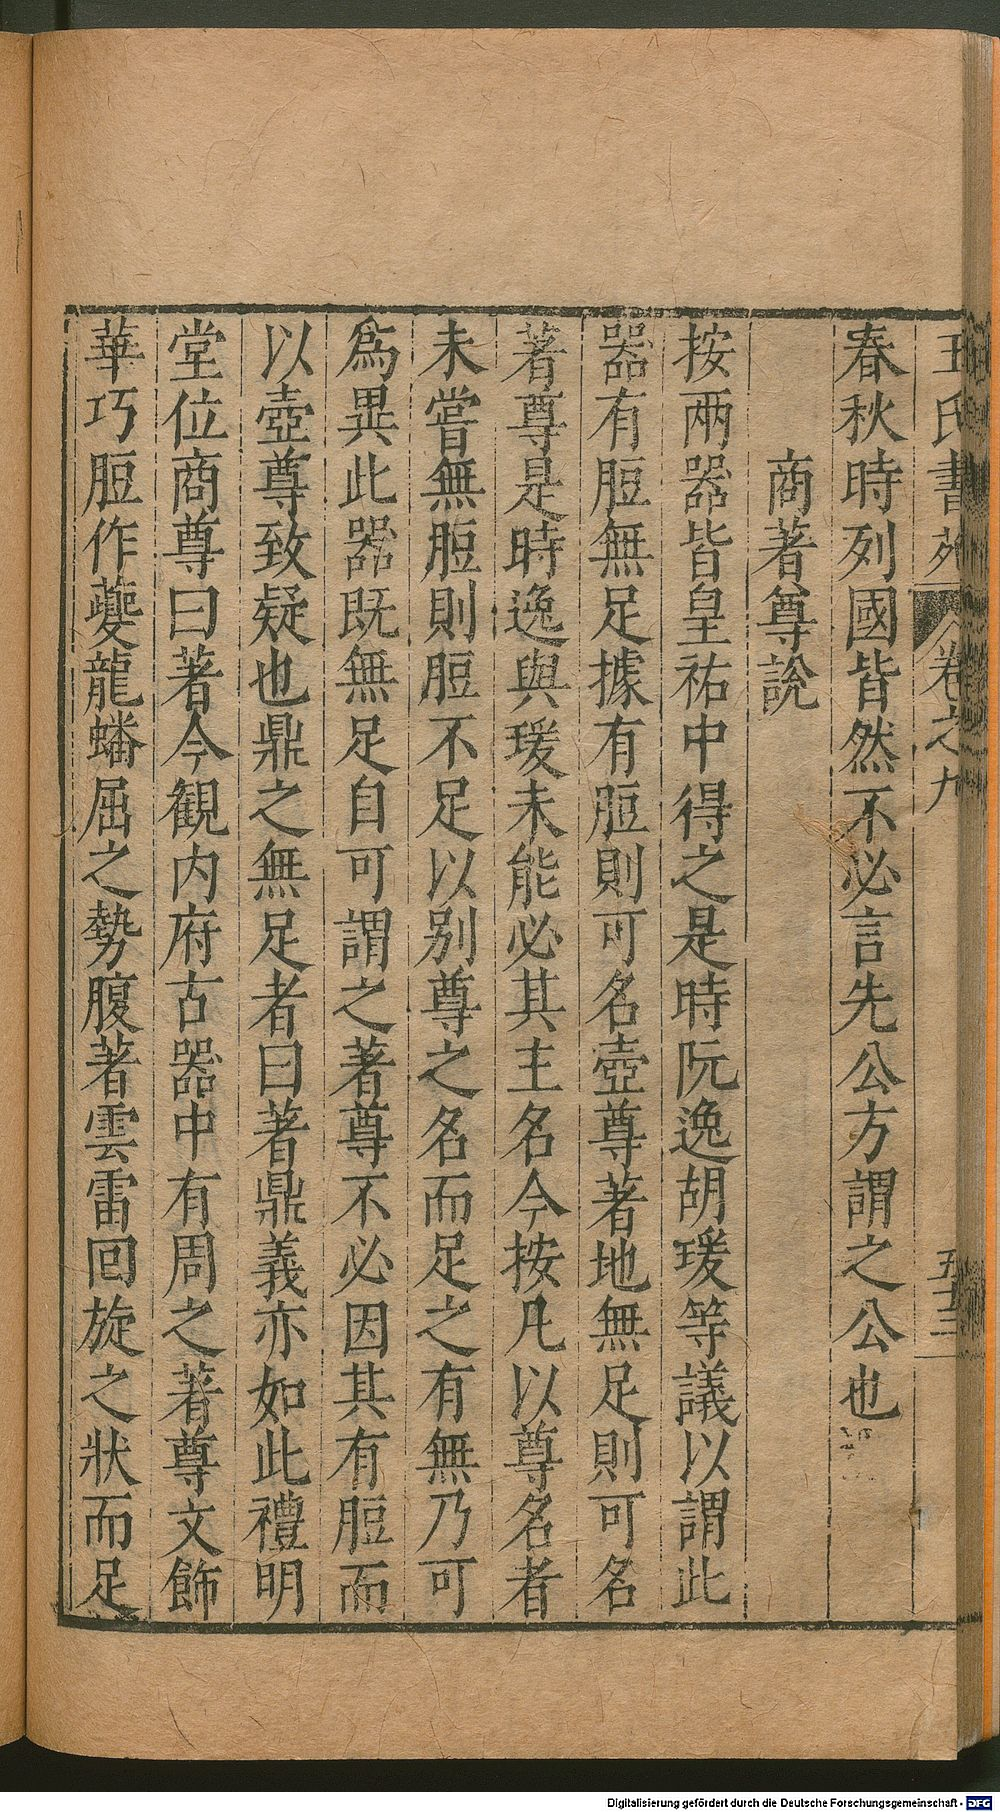 王氏書苑 卷之九 五十三
春秋時列國皆然不必言先公方謂之公也
商著尊說
按兩器皆皇祐中得之是時阮逸胡瑗等議以謂此
器有脰無足據有脰則可名壺尊著地無足則可名
著尊是時逸與瑗未能必其主名今按凡以尊名者
未嘗無脰則脰不足以別尊之名而足之有無乃可
爲異此器既無足自可謂之著尊不必因其有脰而
以壺尊致疑也鼎之無足者曰著鼎義亦如此禮明
堂位商尊曰著今観内府古器中有周之著尊文飾
華巧脰作夔龍蟠屈之勢腹著雲雷回旋之狀而足
Digitalisierung gefördert durch die Deutsche Forschungsgemeinschaft - DFG